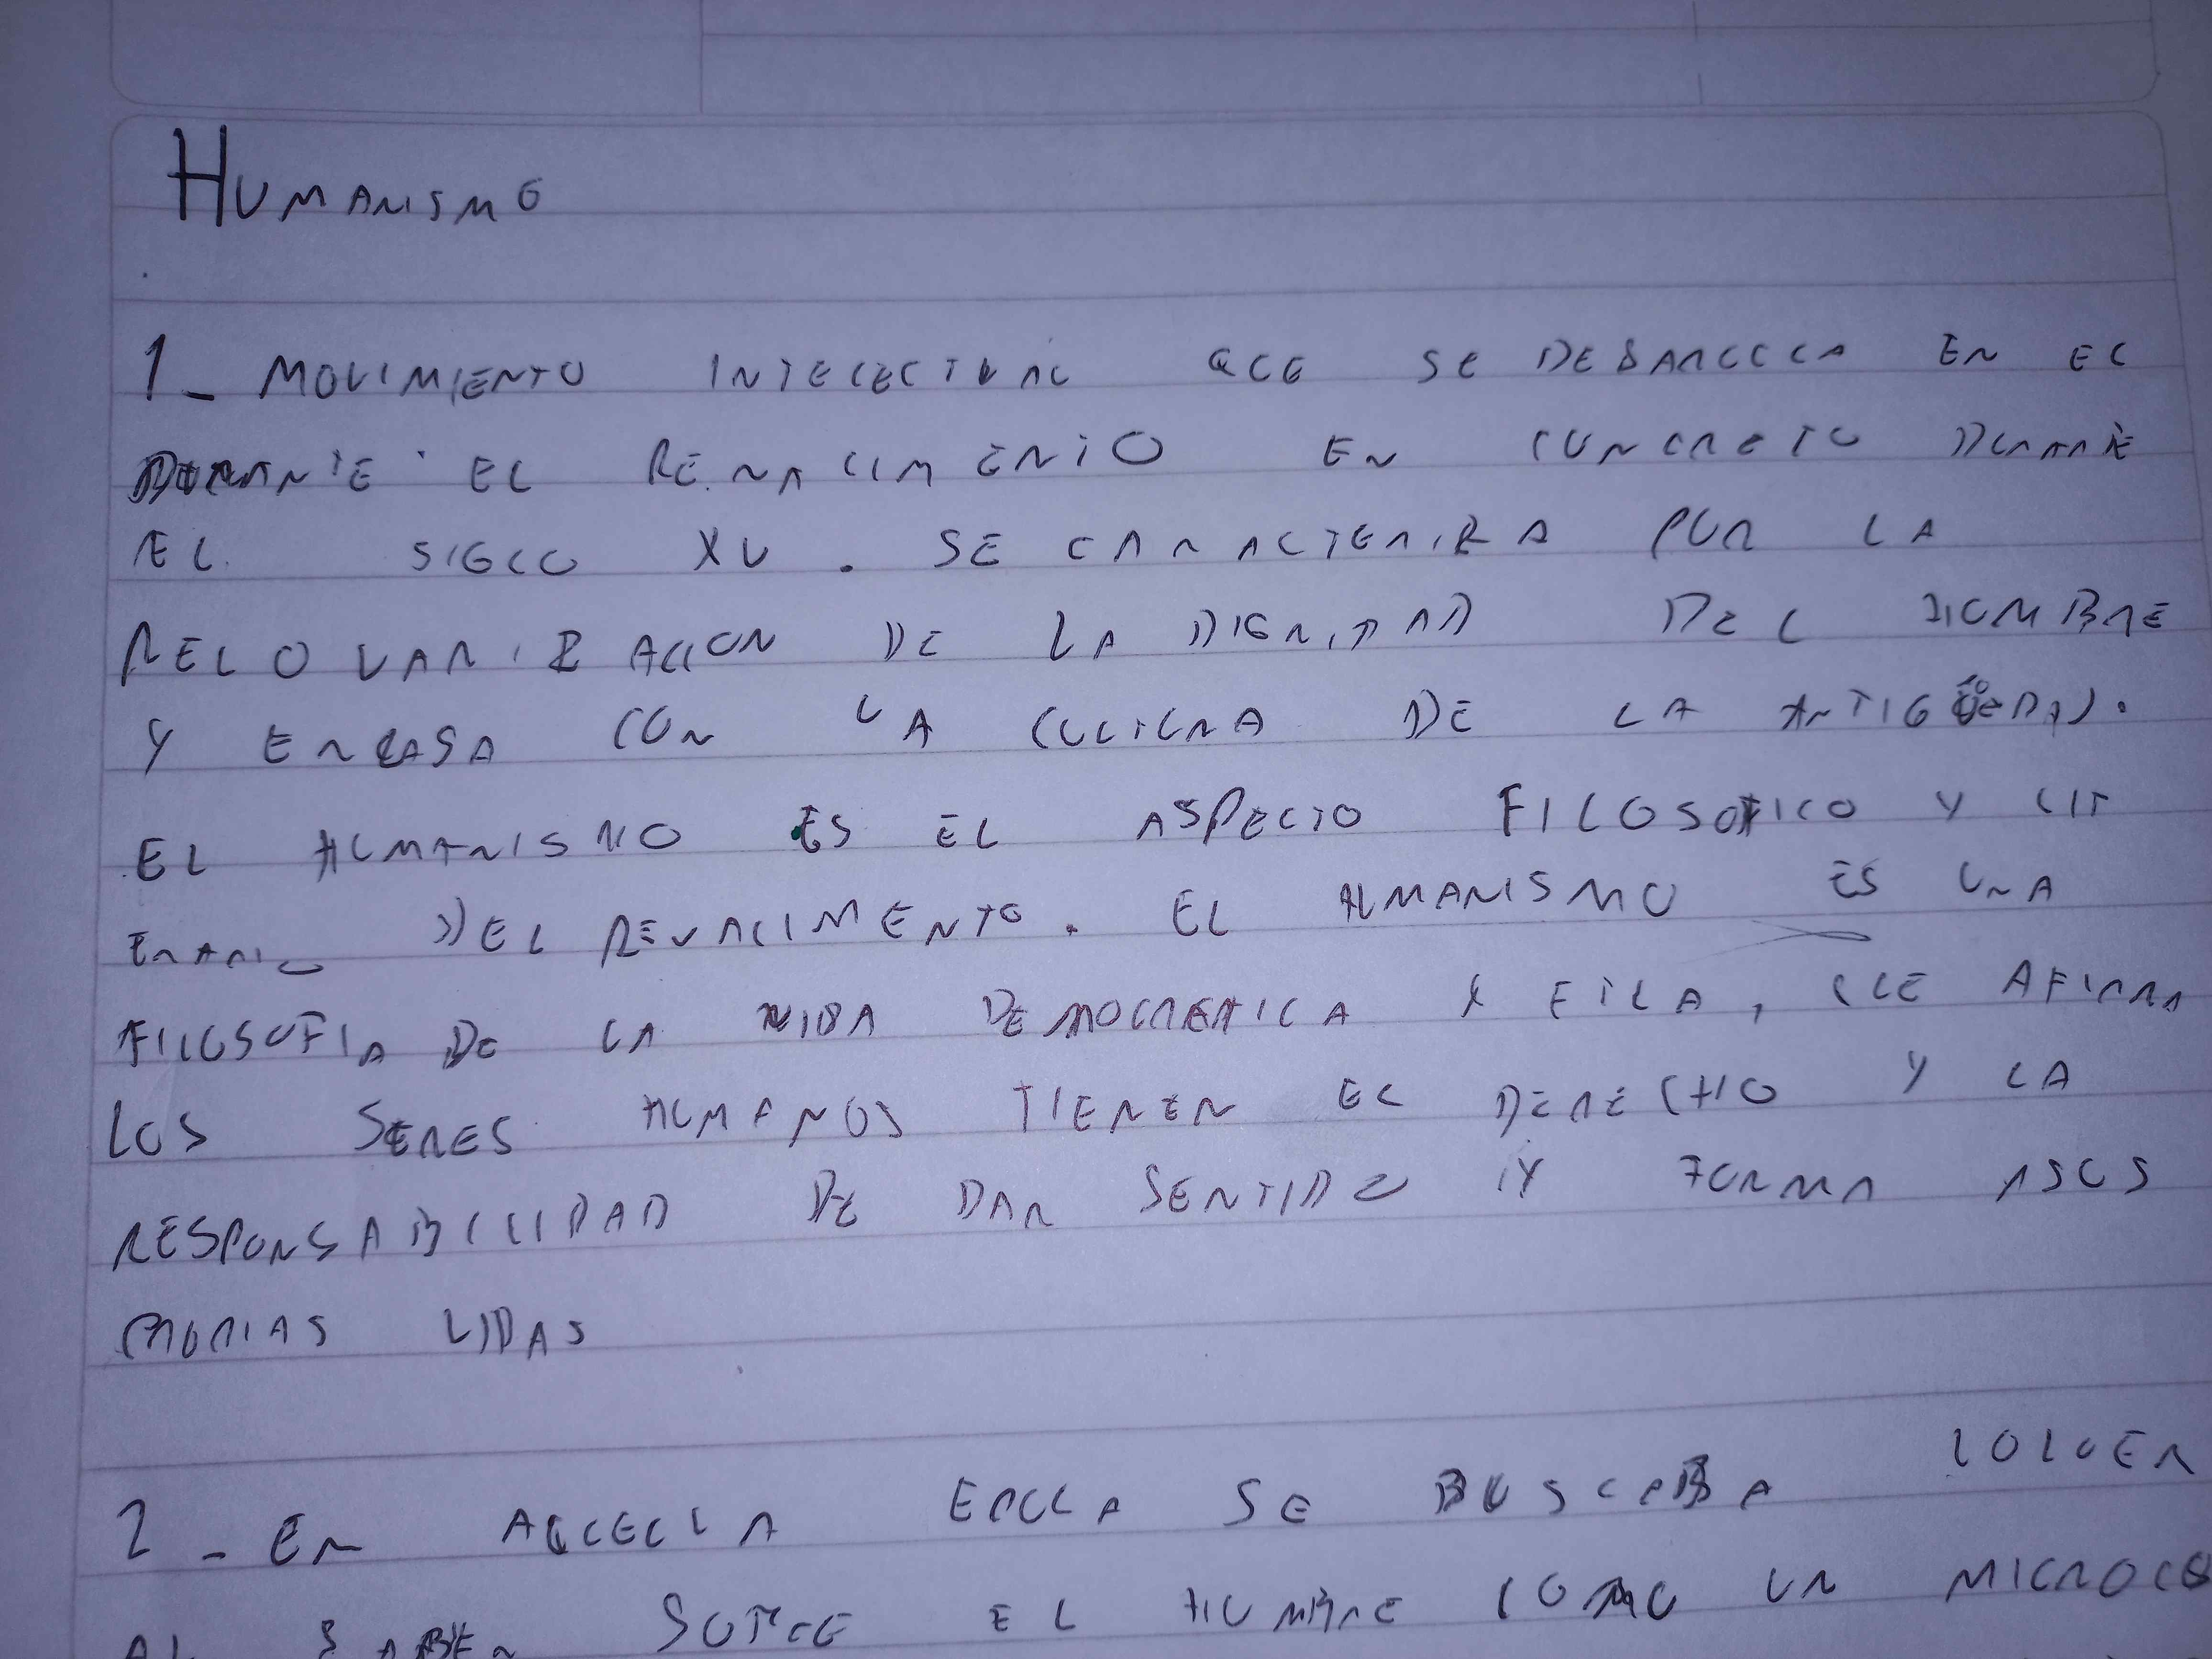 HUMANISMO
1_ MOVIMIENTO INTELECTUAL QUE SE DESARROLLA EN EL
DURANTE EL RENACIMIENTO EN CONCRETO DURANTE
EL SIGLO XV. SE CARACTERIZA POR LA
DE LA DIGNIDAD DEL HOMBRE
Y ENCASA CON LA CULTURA DE LA
EL HUMANISMO ES EL ASPECTO FILOSOFICO Y LIT
ERARIO DEL RENACIMENTO. EL HUMANISMO ES UNA
FILOSOFIA DE LA VIDA DEMOCRATICA Y ETICA, QUE AFIRMA
LOS SERES HUMANOS TIENEN EL DERECHO Y LA
RESPONSABILIDAD DE DAR SENTIDO Y FORMA ASUS
PROPIAS VIDAS
2_ EN AQUELLA EPOCA SE BUSCABA VOLVER
AL SABER SOBRE EL HOMBRE COMO UN MICROCOS